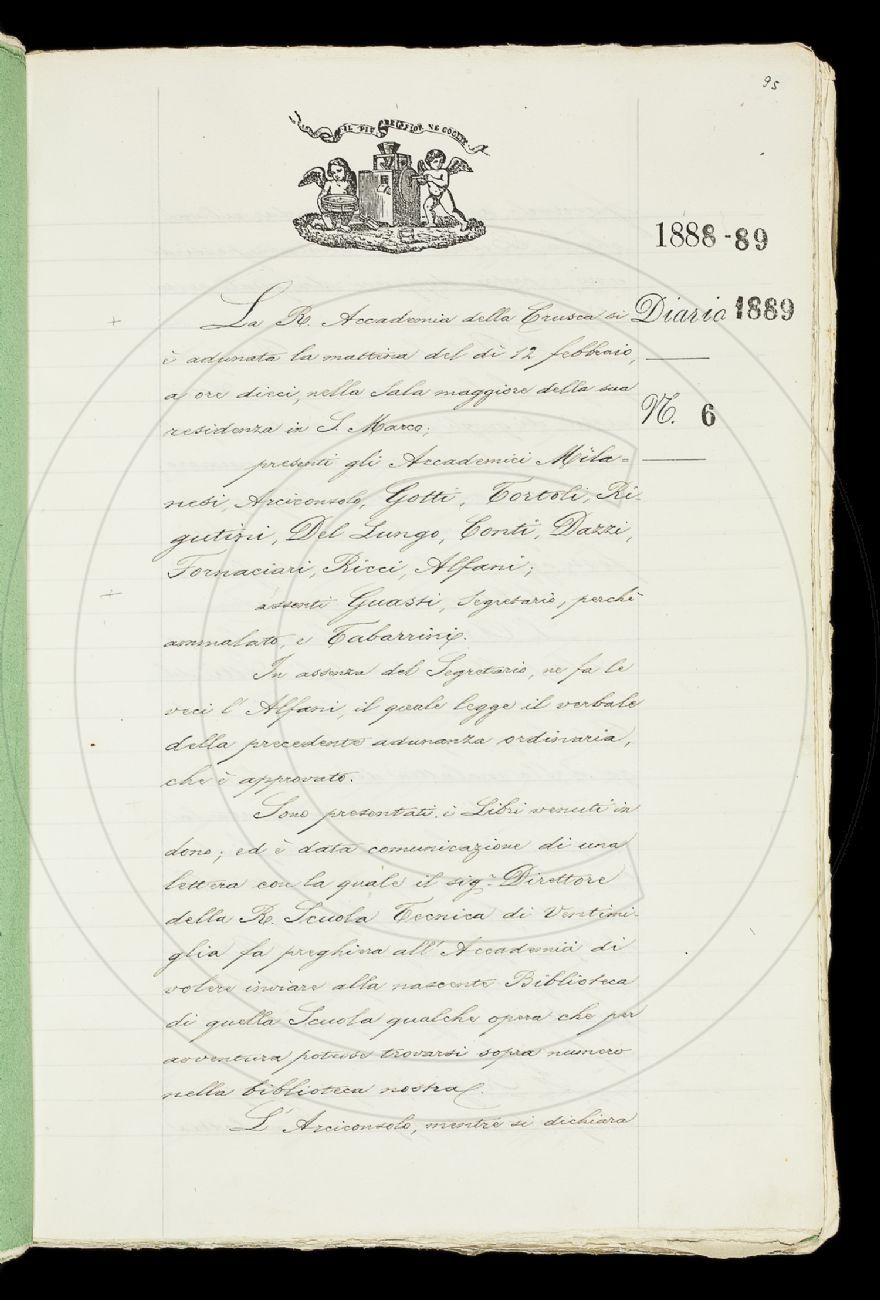 95
IL PIÙ BEL FIOR NE COGLIE
1888-89
Diario 1889
N. 6
La R. Accademia della Crusca si
è adunata la mattina del dì 12 febbraio,
a ore dieci, nella Sala maggiore della sua
residenza in S. Marco;
presenti gli Accademici Mila=
nesi, Arciconsolo, Gotti, Tortoli, Ri-
gutini, Del Lungo, Conti, Dazzi,
Fornaciari, Ricci, Alfani;
assenti Guasti, Segretario, perchè
ammalato, e Tabarrini.
In assenza del Segretario, ne fa le
veci l'Alfani, il quale legge il verbale
della precedente adunanza ordinaria,
che è approvato.
Sono presentati i Libri venuti in
dono; ed è data comunicazione di una
lettera con la quale il sig.r Direttore
della R. Scuola Tecnica di Ventimi-
glia fa preghiera all'Accademia di
volere inviare alla nascente Biblioteca
di quella Scuola qualche opera che per
avventura potesse trovarsi sopra numero
nella biblioteca nostra.
L'Arciconsolo, mentre si dichiara